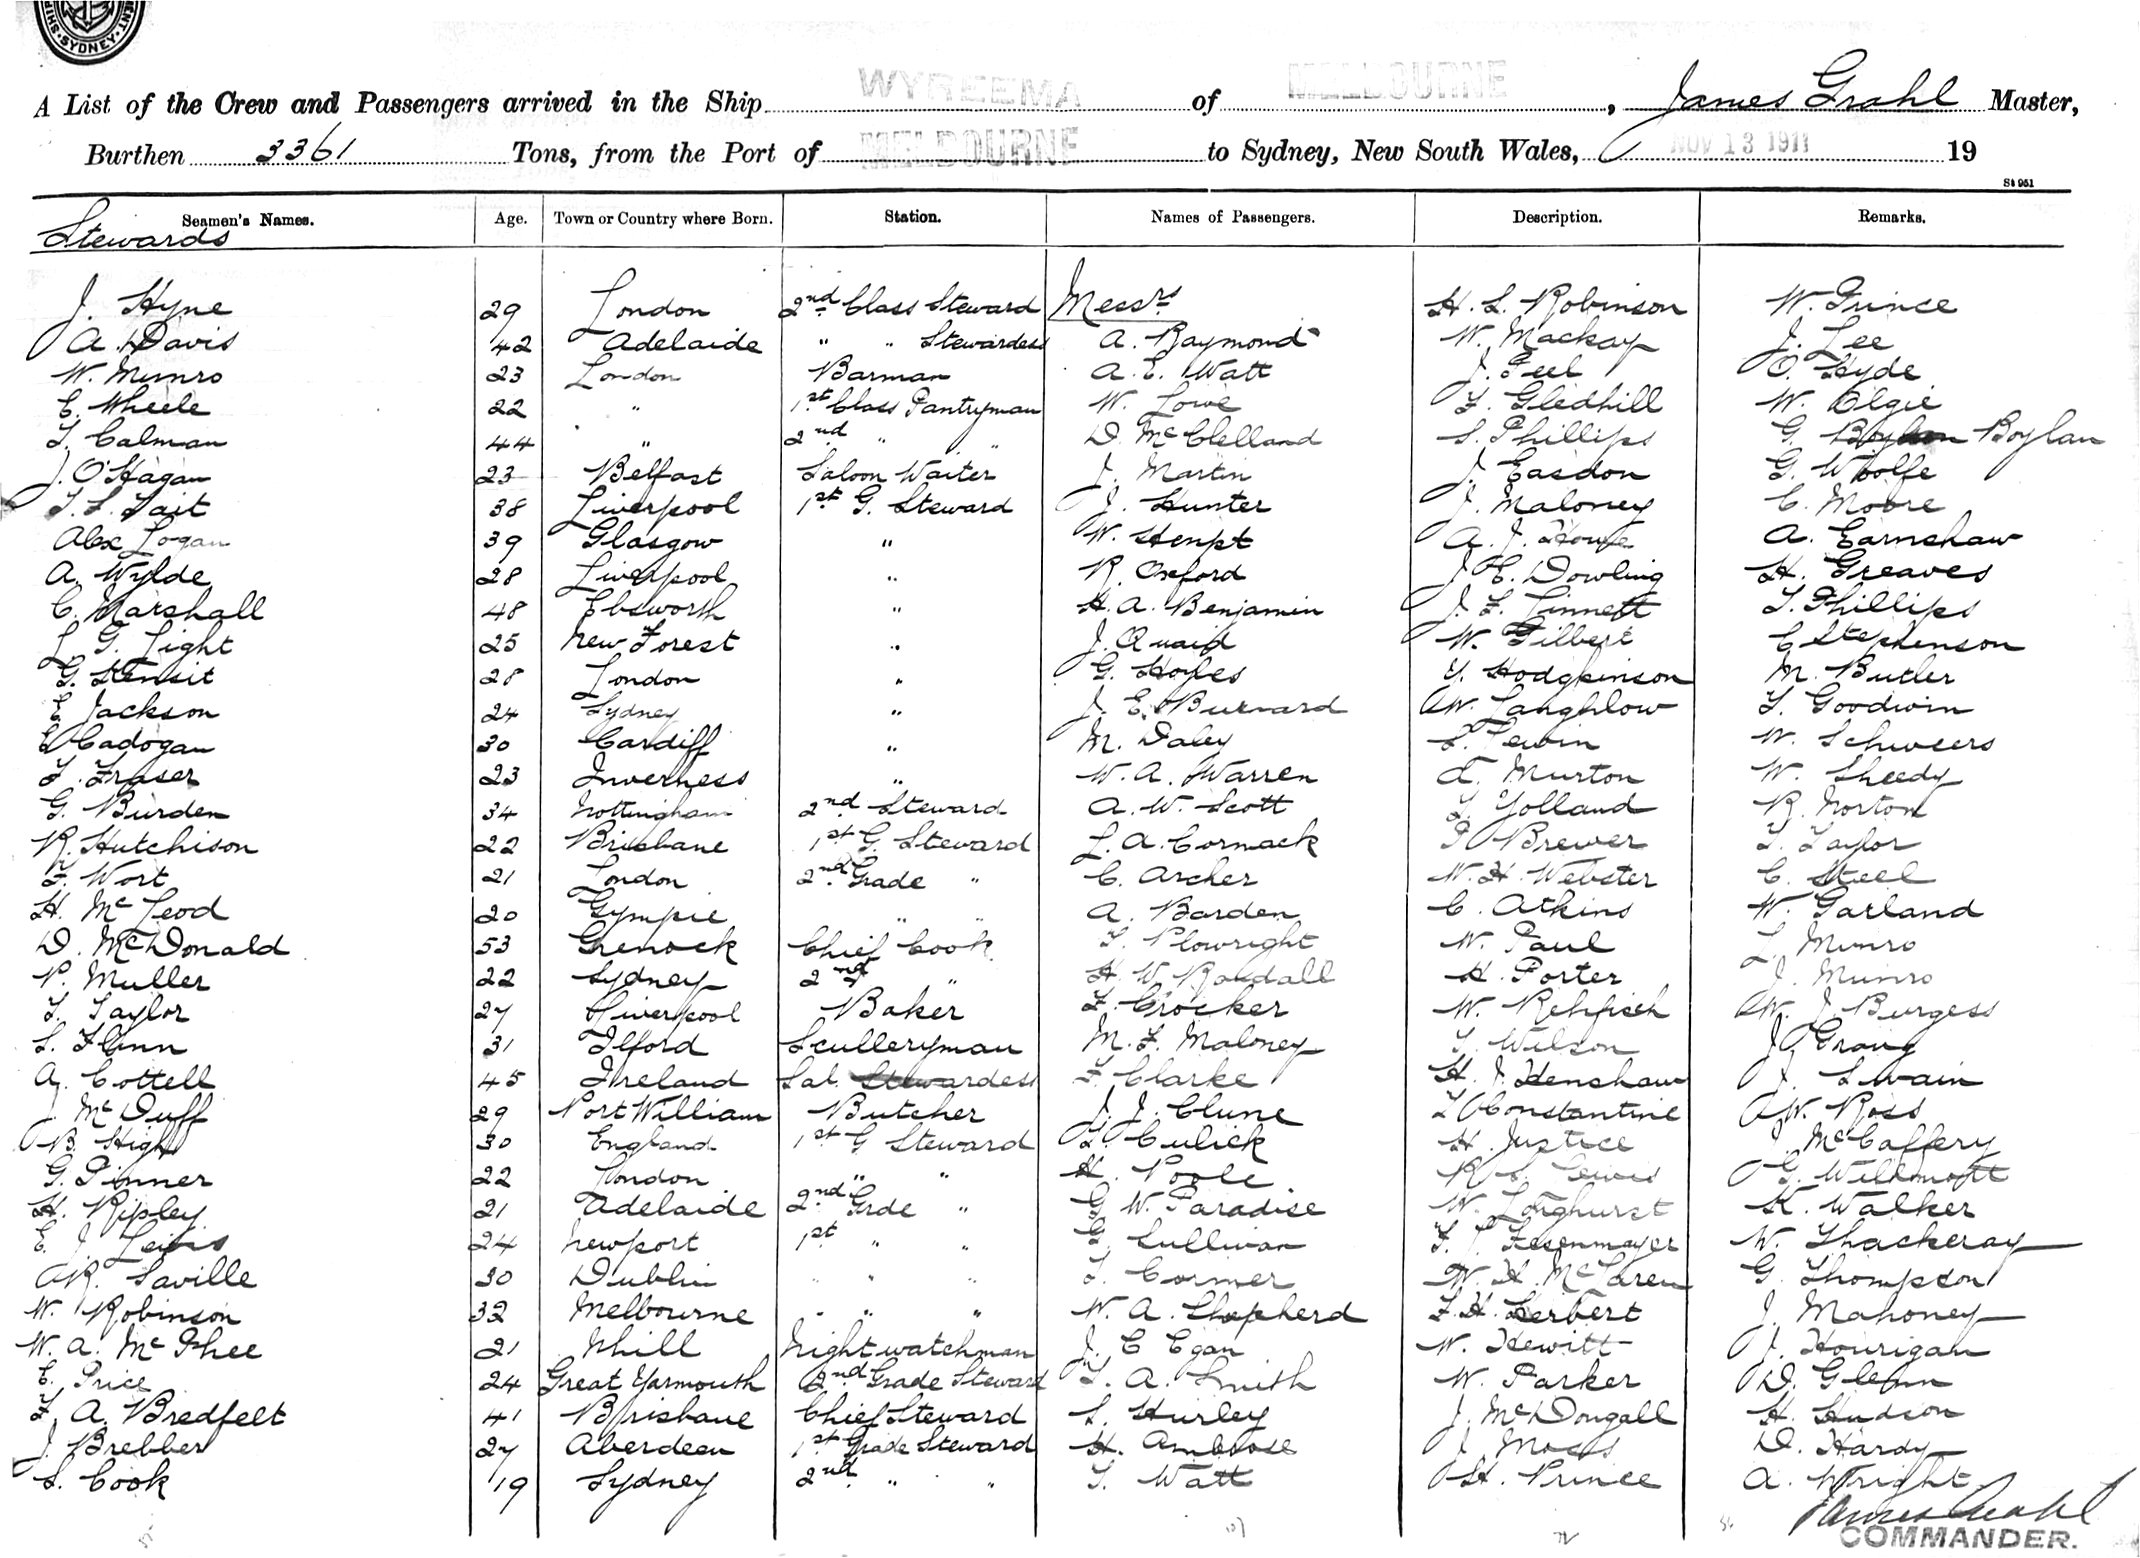 SYDNEY
A List of the Crew and Passengers arrived in the Ship WYREEMA of MELBOURNE, James Grahl Master,
Burthen 3361 Tons, from the Port of MELBOURNE to Sydney, New South Wales, NOV 13 1911 19
St 951
Seamen's Names. Age. Town or Country where Born. Station. Names of Passengers. Description. Remarks.
Stewards
J. Hyne 29 London 2nd Class Steward Messrs H. L. Robinson W. Prince
A. Davis 42 Adelaide " " Stewardess A. Raymond W. Mackay J. Lee
W. Munro 23 London Barman A. E. Watt J. Peel O. Hyde
E. Wheele 22 " 1st Class Pantryman W. Lowe F. Gledhill W. Elgie
T. Calman 44 " 2nd " " D. McClelland S. Phillips G. Boylan
J. O'Hagan 23 Belfast Saloon Waiter J. Martin J. Easdon G. Woolfe
T. S. Tait 38 Liverpool 1st G. Steward J. Hunter J. Maloney C. Moore
Alex Logan 39 Glasgow " W. Hempt A. J. Howe A. Earnshaw
A. Wylde 28 Liverpool " R. Oxford J. E. Dowling H. Greaves
C. Marshall 48 Ebsworth " H. A. Benjamin J. F. Linnett T. Phillips
L. G. Light 25 New Forest " J. Quaid W. Gilbert C Stephenson
G. Stensit 28 London " G. Hoyles T. Hodgkinson M. Butler
E. Jackson 24 Sydney " J. E. Burnard W. Langhlow T. Goodwin
E Cadogan 30 Cardiff " M. Daley S. Lewin W. Schweers
F. Fraser 23 Inverness " W. A. Warren A. Murton W. Sheedy
G. Burden 34 Nottingham 2nd Steward A. W. Scott T. Yolland R. Norton
R. Hutchison 22 Brisbane 1st G. Steward L. A. Cormack P Brewer T. Taylor
F. Wort 21 London 2nd Grade " C. Archer W. H. Webster C. Steel
H. McLeod 20 Gympie " " A. Barden C. Atkins W. Garland
D. McDonald 53 Grenock Chief Cook T. Plowright W. Paul L. Munro
P. Muller 22 Sydney 2nd " H. W. Randall H. Porter J. Munro
T. Taylor 27 Liverpool Baker F. Crocker W. Rehfisch W. J. Burgess
S. Flinn 31 Ilford Sculleryman M. F. Maloney T. Wilson J. Graug
A. Cottell 45 Ireland Sal. Stewardess F. Clarke H. J. Henshaw J. Swain
J. McDuff 29 Port William Butcher J. J. Clune T Constantine W. Ross
B. High 30 England 1st G Steward L. Culick H. Justice J. McCaffery
G. Pinner 22 London " " H. Poole R S. Lewis G. Willmott
H. Ripley 21 Adelaide 2nd Grde " G. W. Paradise W. Longhurst K. Walker
E. J. Lewis 24 Newport 1st " " G. Sullivan F. J. Fesenmayer W. Thackeray
R. Saville 30 Dublin " " " T. Cormer W. H. McLaren G. Thompson
W. Robinson 32 Melbourne " " " W. A. Shepherd F. H. Herbert J. Mahoney
W. A. McPhee 21 Nhill Nightwatchman J. C Egan W. Hewitt J. Hourigan
E. Price 24 Great Yarmouth 2nd Grade Steward T. A. Smith W. Parker D. Glenn
F. A. Bredfelt 41 Brisbane Chief Steward S. Hurley J. McDougall H. Hudson
J. Brebber 27 Aberdeen 1st Grade Steward H. Ambrose J. Moss D. Hardy
S. Cook 19 Sydney 2nd " " T. Watt H. Prince A. Wright
James Grahl
COMMANDER.